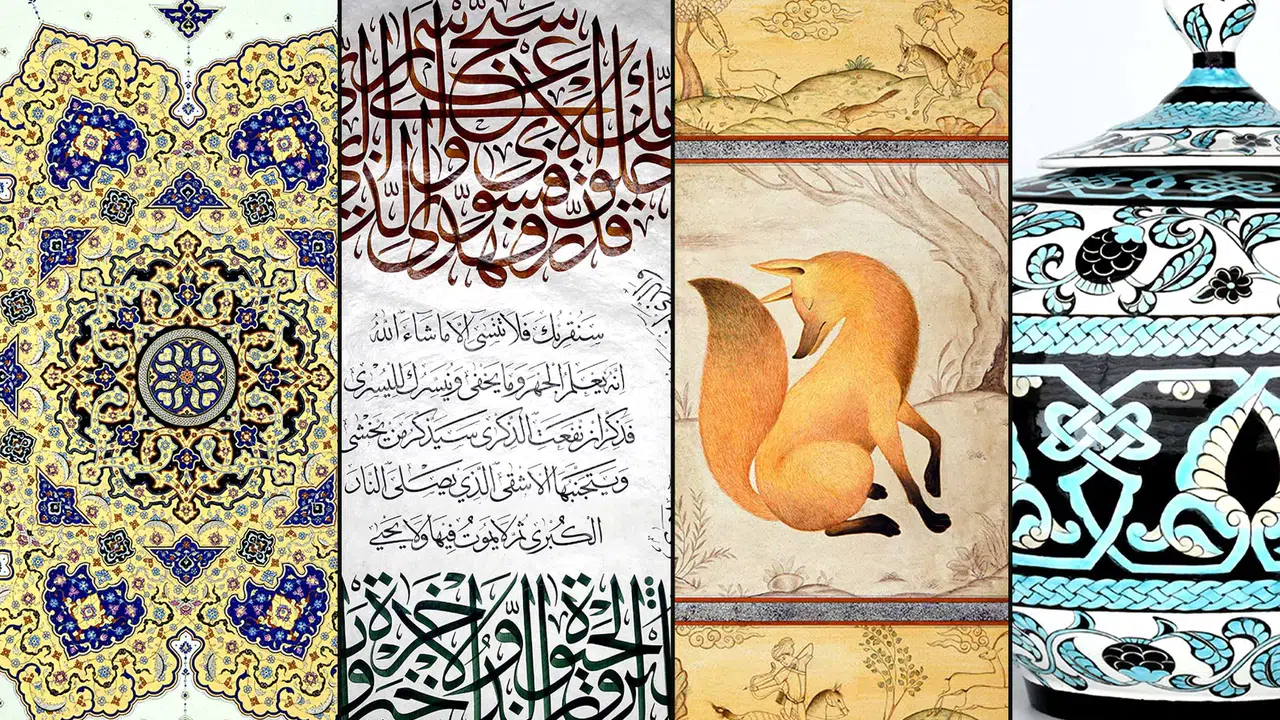 سبح اسم ربك الاعلى الذى
خلق فسوى والذى
قدر فهدى
سنقرئك فلا تنسى الا ما شاء الله
انه يعلم الجهر وما يخفى ونيسرك لليسرى
فذكر ان نفعت الذكرى سيذكر من يخشى
ويتجنبها الاشقى الذي يصلى النار
الكبرى ثم لا يموت فيها ولا يحيى
الحيوة الدنيا والاخرة خير